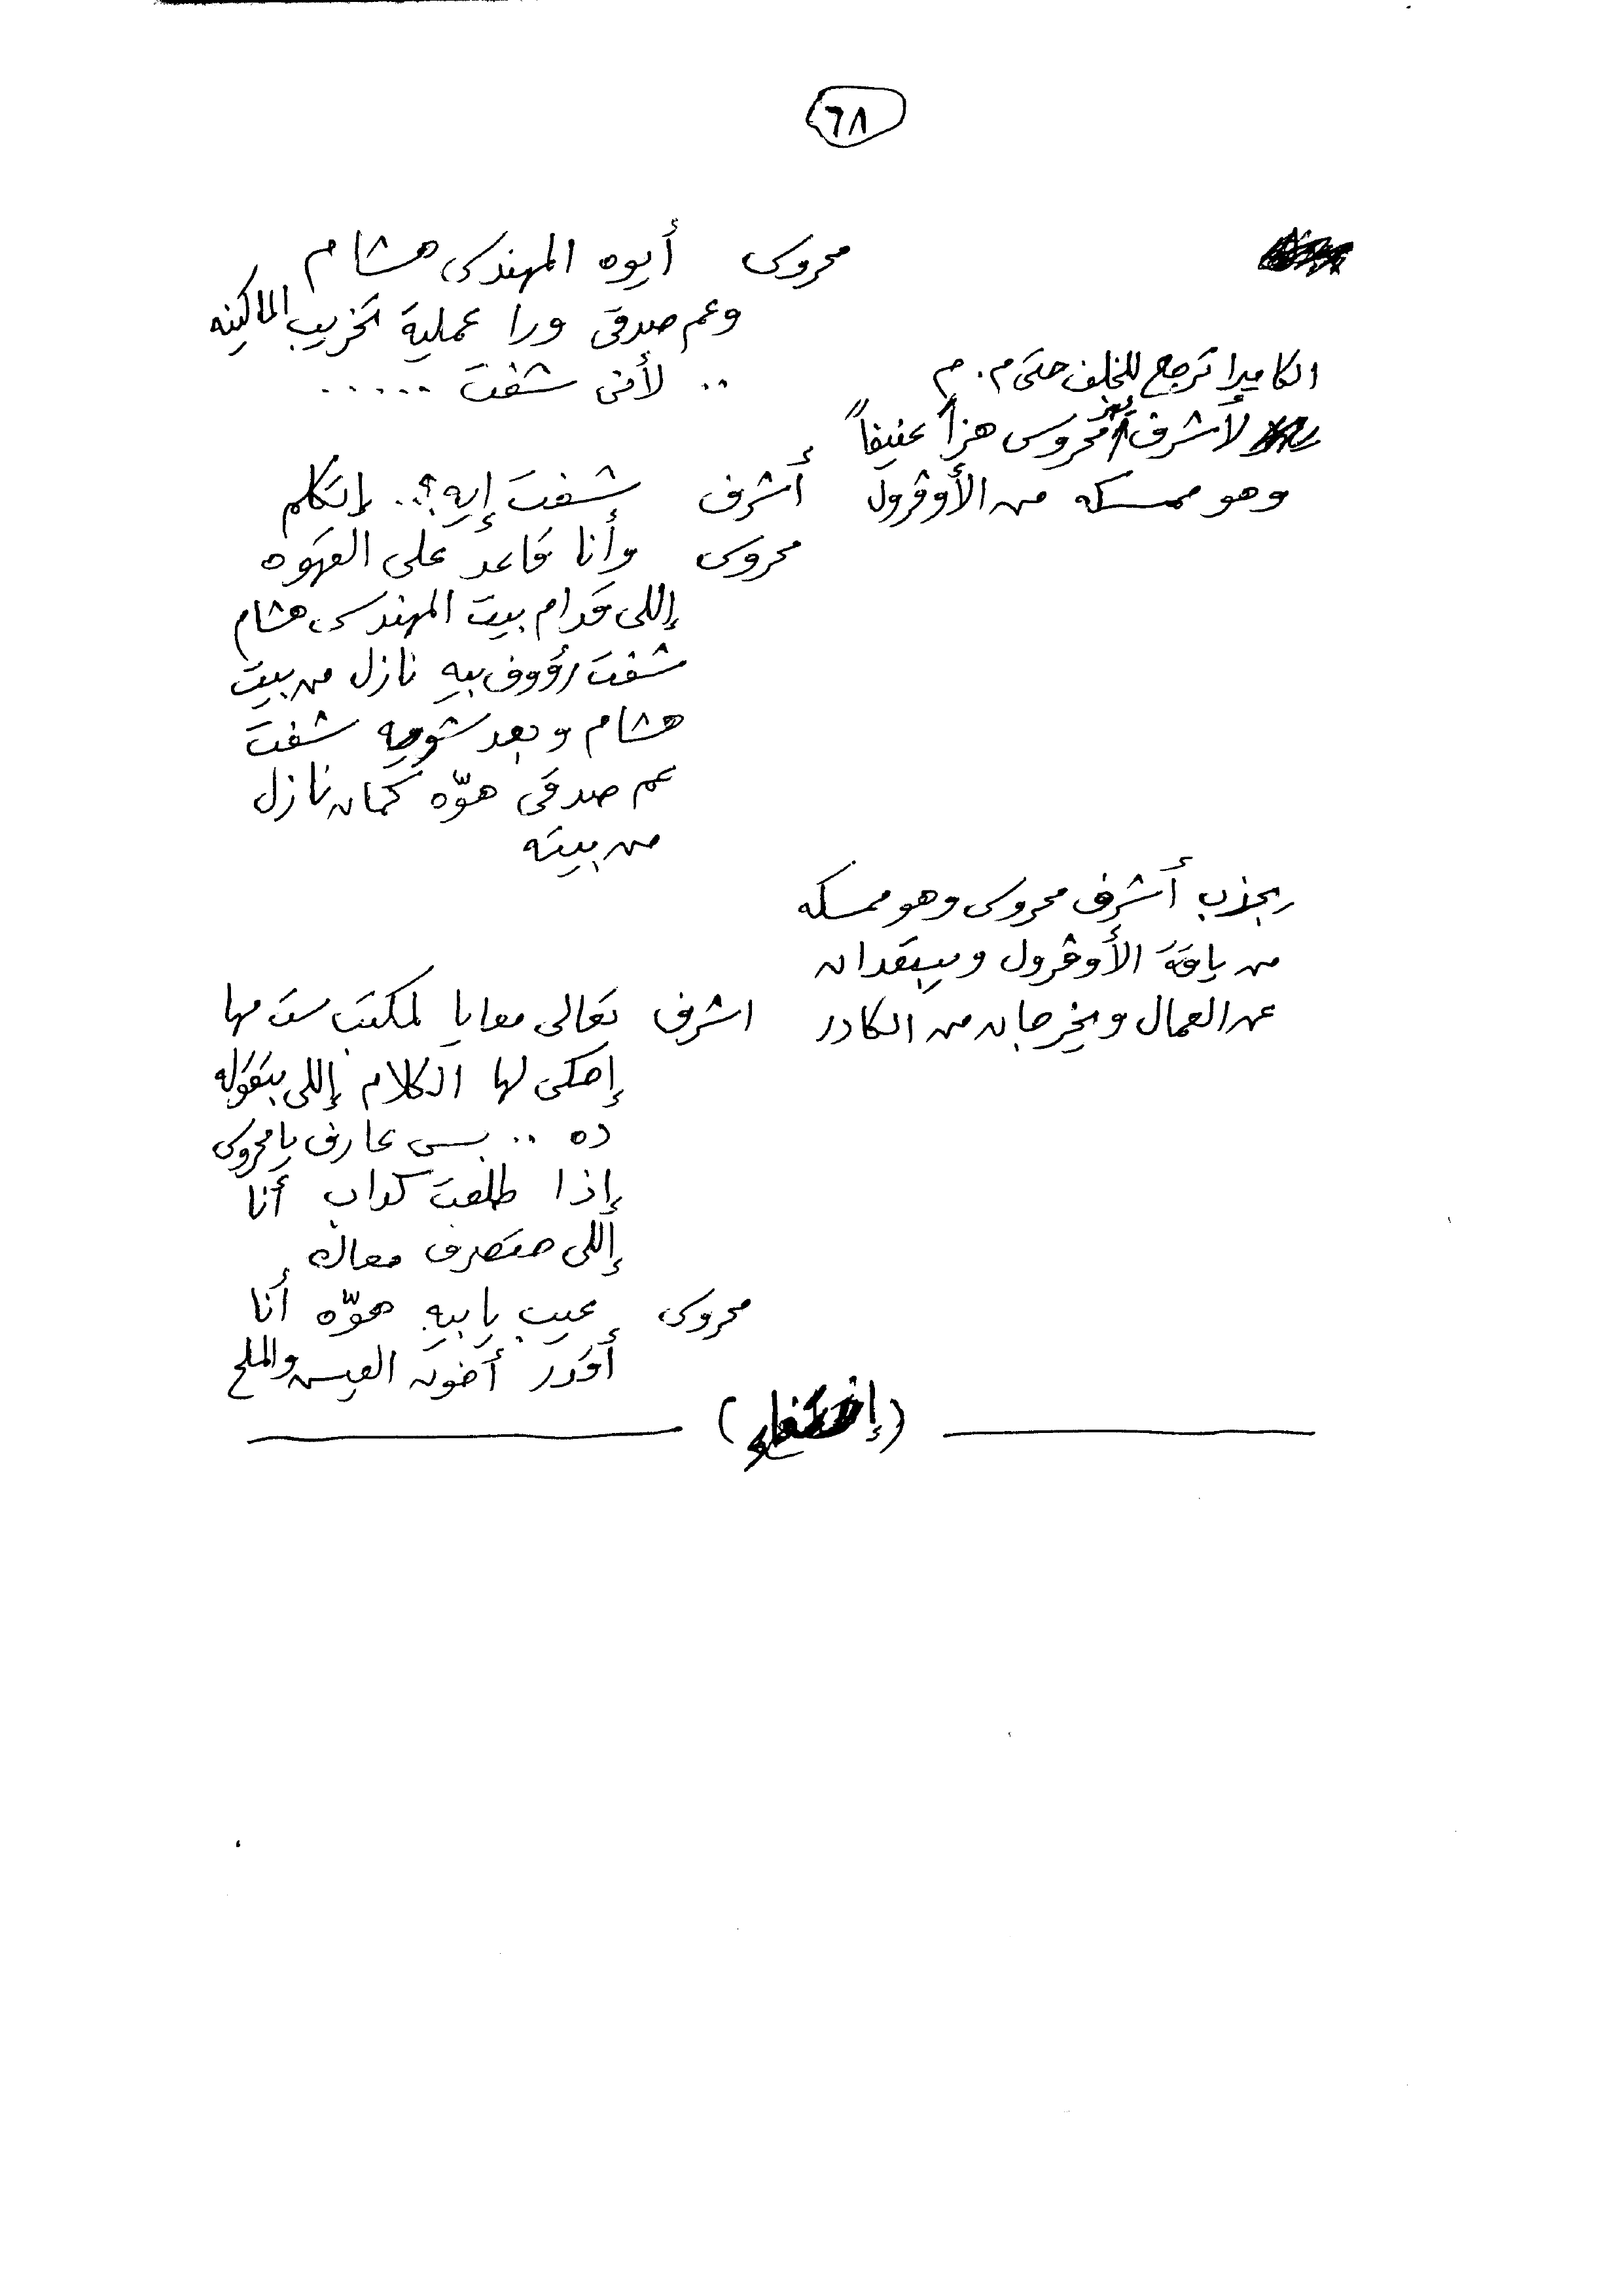 ٦٨
محروس أيوه المهندس هشام
وعم صدقى ورا عملية تخريب الماكينه
.. لأنى شفت .....
الكاميرا ترجع للخلف حتى م . م
لأشرف يهز محروس هزاً عنيفاً
وهو ممسكه من الأوڤرول
أشرف شفت إيه؟.. إتكلم
محروس وأنا قاعد على القهوه
إللى قدام بيت المهندس هشام
شفت رؤوف بيه نازل من بيت
هشام وبعد شويه شفت
عم صدقى هوّه كمان نازل
من بيته
يجذب أشرف محروس وهو ممسكه
من ياقة الأوڤرول ويبتعدان
عن العمال ويخرجان من الكادر
اشرف تعالى معايا لمكتب ست مها
إحكى لها الكلام إللى بتقوله
ده .. بس عارف يا محروس
إذا طلعت كداب أنا
إللى حتصرف معاك
محروس عيب يا بيه هوّه أنا
أقدر أخون العيش والملح